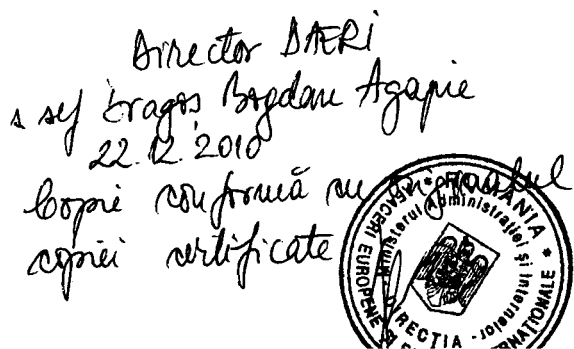 Director DAERI
s sef Dragoș Bogdan Agapie
22.12.2010
Copie conformă cu originalul
copiei certificate
* ROMANIA *
Ministerul Administrației și Internelor
DIRECȚIA
AFACERI EUROPENE ȘI